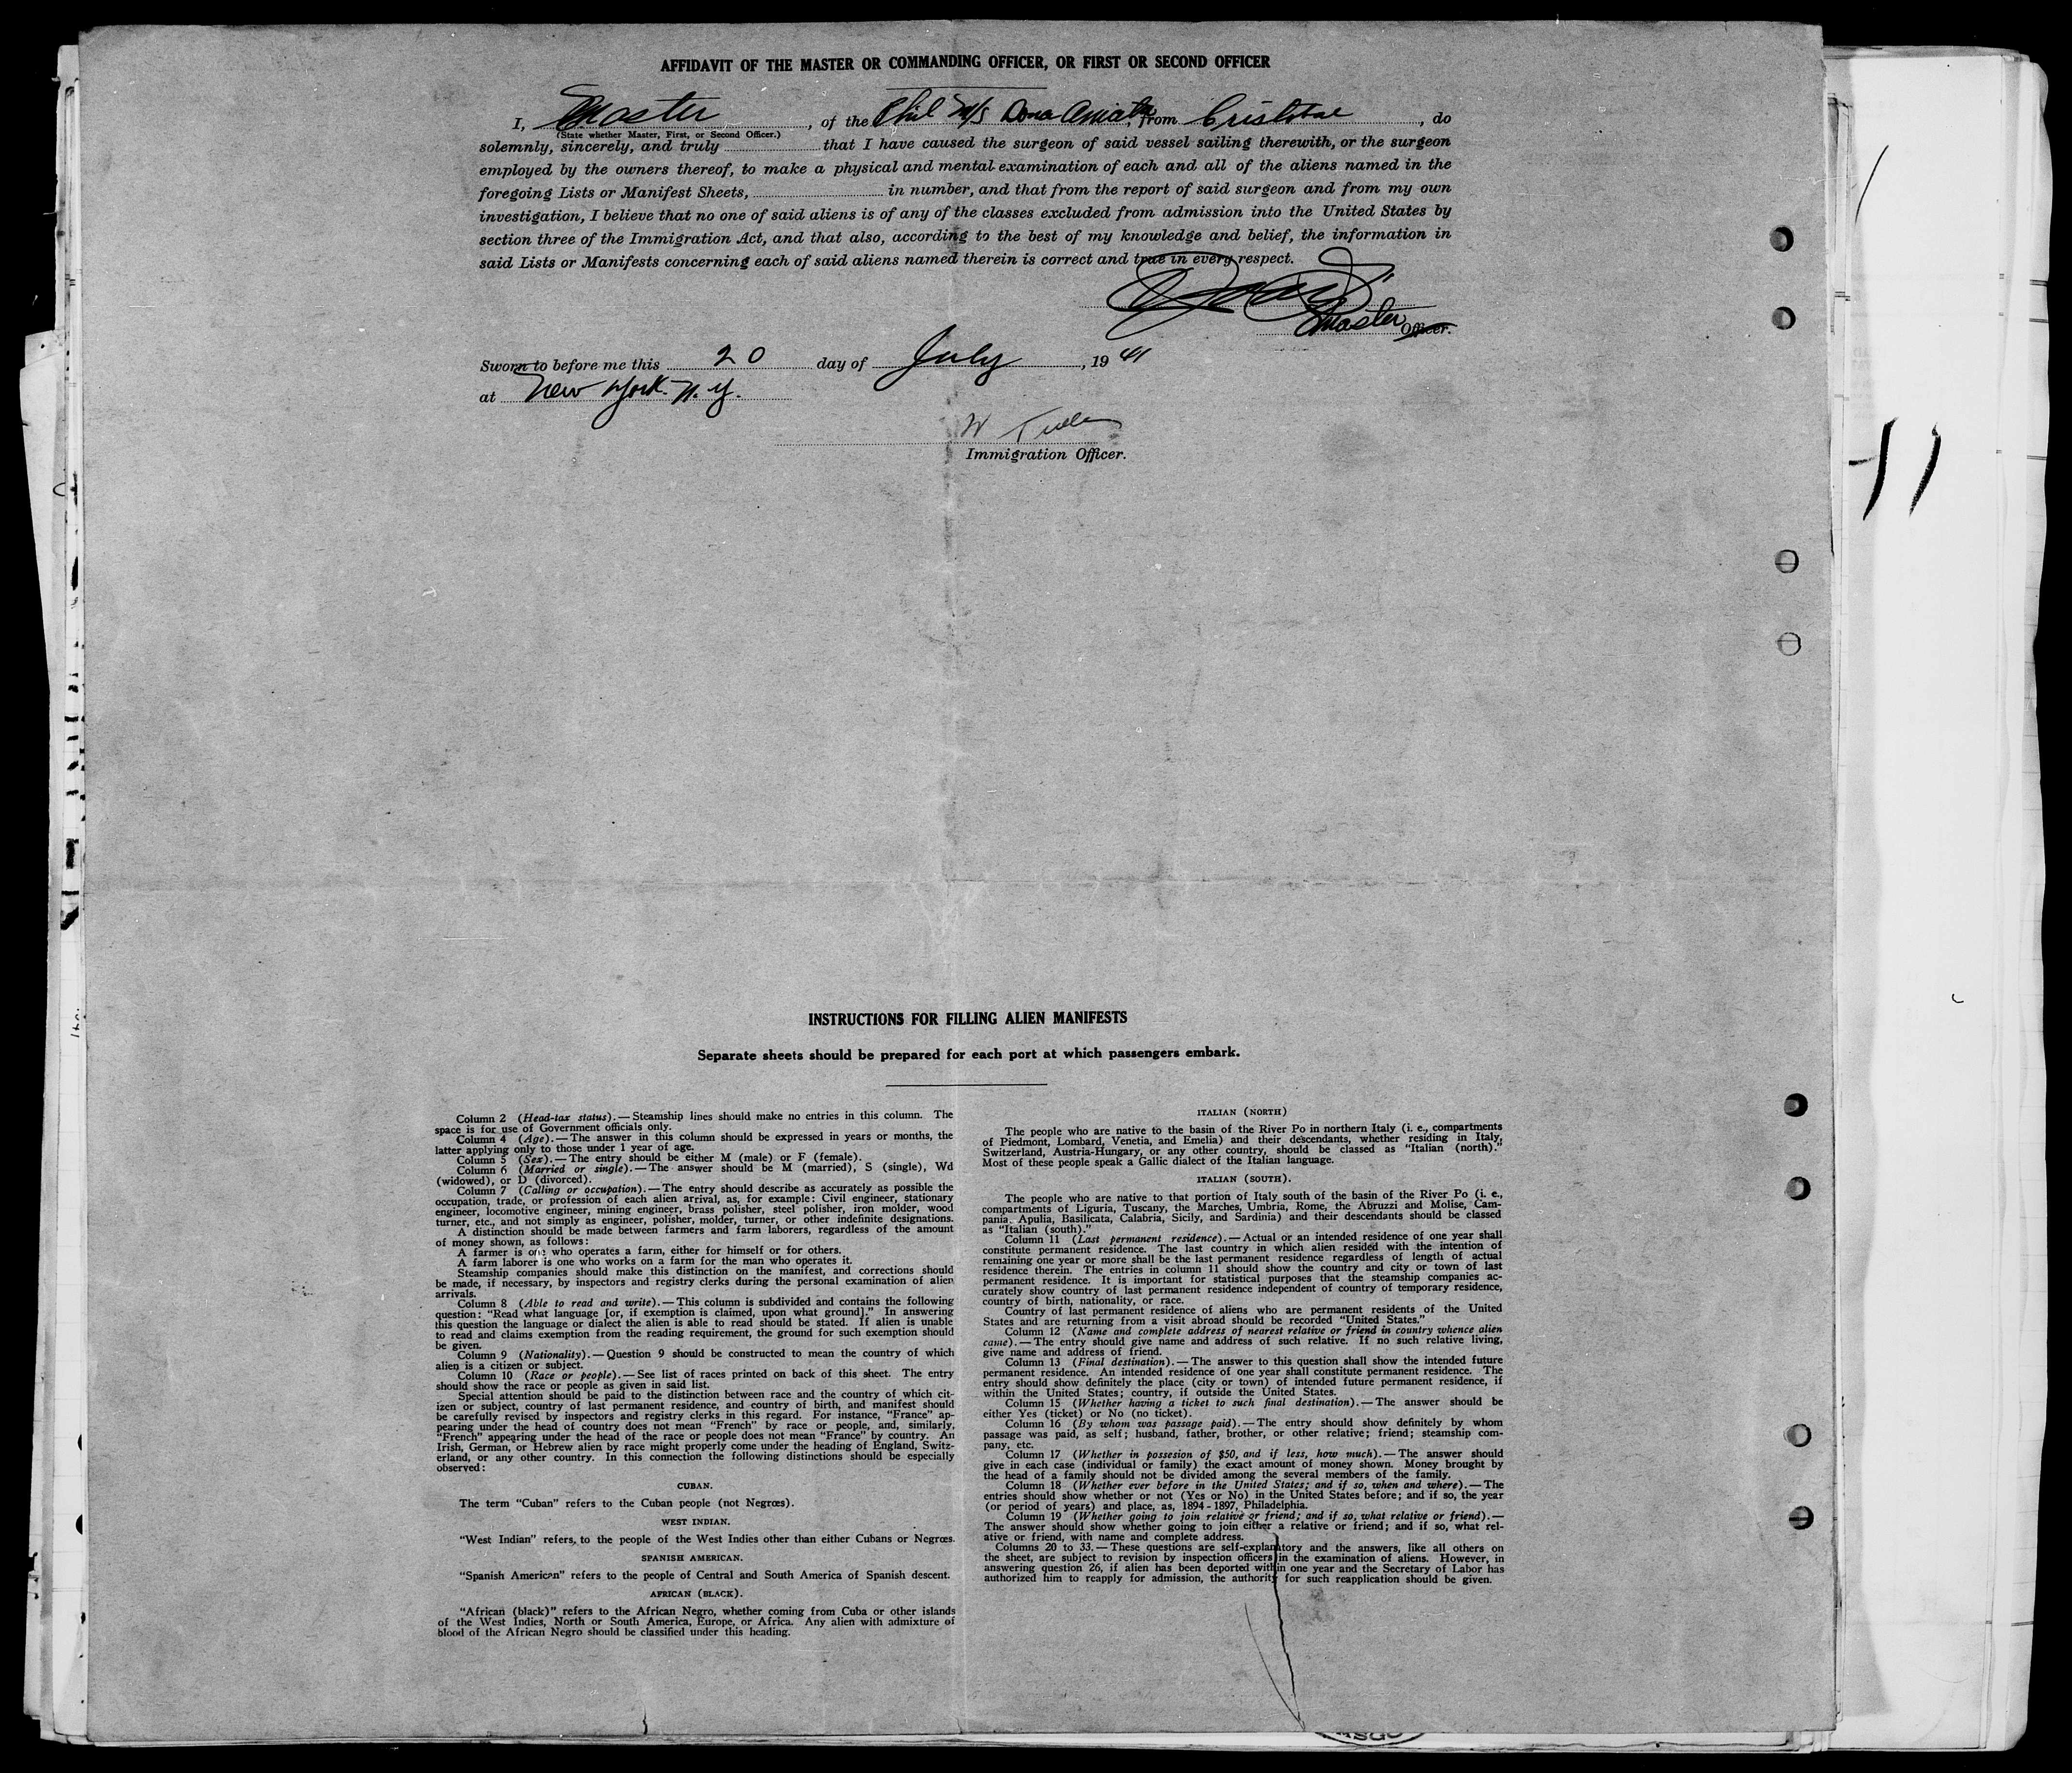 AFFIDAVIT OF THE MASTER OR COMMANDING OFFICER, OR FIRST OR SECOND OFFICER
I, Master, of the Phil M/S Dona Aniceta, from Cristobal, do
(State whether Master, First, or Second Officer.)
solemnly, sincerely, and truly that I have caused the surgeon of said vessel sailing therewith, or the surgeon
employed by the owners thereof, to make a physical and mental examination of each and all of the aliens named in the
foregoing Lists or Manifest Sheets, in number, and that from the report of said surgeon and from my own
investigation, I believe that no one of said aliens is of any of the classes excluded from admission into the United States by
section three of the Immigration Act, and that also, according to the best of my knowledge and belief, the information in
said Lists or Manifests concerning each of said aliens named therein is correct and true in every respect.
Master Officer.
Sworn to before me this 20 day of July, 19 41
at New York. N.Y.
Immigration Officer.
11
INSTRUCTIONS FOR FILLING ALIEN MANIFESTS
Separate sheets should be prepared for each port at which passengers embark.
Column 2 (Head-tax status).—Steamship lines should make no entries in this column. The
space is for use of Government officials only.
Column 4 (Age).—The answer in this column should be expressed in years or months, the
latter applying only to those under 1 year of age.
Column 5 (Sex).—The entry should be either M (male) or F (female).
Column 6 (Married or single).—The answer should be M (married), S (single), Wd
(widowed), or D (divorced).
Column 7 (Calling or occupation).—The entry should describe as accurately as possible the
occupation, trade, or profession of each alien arrival, as, for example: Civil engineer, stationary
engineer, locomotive engineer, mining engineer, brass polisher, steel polisher, iron molder, wood
turner, etc., and not simply as engineer, polisher, molder, turner, or other indefinite designations.
A distinction should be made between farmers and farm laborers, regardless of the amount
of money shown, as follows:
A farmer is one who operates a farm, either for himself or for others.
A farm laborer is one who works on a farm for the man who operates it.
Steamship companies should make this distinction on the manifest, and corrections should
be made, if necessary, by inspectors and registry clerks during the personal examination of alien
arrivals.
Column 8 (Able to read and write).—This column is subdivided and contains the following
question: "Read what language [or, if exemption is claimed, upon what ground]." In answering
this question the language or dialect the alien is able to read should be stated. If alien is unable
to read and claims exemption from the reading requirement, the ground for such exemption should
be given.
Column 9 (Nationality).—Question 9 should be constructed to mean the country of which
alien is a citizen or subject.
Column 10 (Race or people).—See list of races printed on back of this sheet. The entry
should show the race or people as given in said list.
Special attention should be paid to the distinction between race and the country of which cit-
izen or subject, country of last permanent residence, and country of birth, and manifest should
be carefully revised by inspectors and registry clerks in this regard. For instance, "France" ap-
pearing under the head of country does not mean "French" by race or people, and, similarly,
"French" appearing under the head of the race or people does not mean "France" by country. An
Irish, German, or Hebrew alien by race might properly come under the heading of England, Switz-
erland, or any other country. In this connection the following distinctions should be especially
observed:
CUBAN.
The term "Cuban" refers to the Cuban people (not Negroes).
WEST INDIAN.
"West Indian" refers to the people of the West Indies other than either Cubans or Negroes.
SPANISH AMERICAN.
"Spanish American" refers to the people of Central and South America of Spanish descent.
AFRICAN (BLACK).
"African (black)" refers to the African Negro, whether coming from Cuba or other islands
of the West Indies, North or South America, Europe, or Africa. Any alien with admixture of
blood of the African Negro should be classified under this heading.
ITALIAN (NORTH)
The people who are native to the basin of the River Po in northern Italy (i. e., compartments
of Piedmont, Lombard, Venetia, and Emelia) and their descendants, whether residing in Italy,
Switzerland, Austria-Hungary, or any other country, should be classed as "Italian (north)."
Most of these people speak a Gallic dialect of the Italian language.
ITALIAN (SOUTH).
The people who are native to that portion of Italy south of the basin of the River Po (i. e.,
compartments of Liguria, Tuscany, the Marches, Umbria, Rome, the Abruzzi and Molise, Cam-
pania, Apulia, Basilicata, Calabria, Sicily, and Sardinia) and their descendants should be classed
as "Italian (south)."
Column 11 (Last permanent residence).—Actual or an intended residence of one year shall
constitute permanent residence. The last country in which alien resided with the intention of
remaining one year or more shall be the last permanent residence regardless of length of actual
residence therein. The entries in column 11 should show the country and city or town of last
permanent residence. It is important for statistical purposes that the steamship companies ac-
curately show country of last permanent residence independent of country of temporary residence,
country of birth, nationality, or race.
Country of last permanent residence of aliens who are permanent residents of the United
States and are returning from a visit abroad should be recorded "United States."
Column 12 (Name and complete address of nearest relative or friend in country whence alien
came).—The entry should give name and address of such relative. If no such relative living,
give name and address of friend.
Column 13 (Final destination).—The answer to this question shall show the intended future
permanent residence. An intended residence of one year shall constitute permanent residence. The
entry should show definitely the place (city or town) of intended future permanent residence, if
within the United States; country, if outside the United States.
Column 15 (Whether having a ticket to such final destination).—The answer should be
either Yes (ticket) or No (no ticket).
Column 16 (By whom was passage paid).—The entry should show definitely by whom
passage was paid, as self; husband, father, brother, or other relative; friend; steamship com-
pany, etc.
Column 17 (Whether in possesion of $50, and if less, how much).—The answer should
give in each case (individual or family) the exact amount of money shown. Money brought by
the head of a family should not be divided among the several members of the family.
Column 18 (Whether ever before in the United States; and if so, when and where).—The
entries should show whether or not (Yes or No) in the United States before; and if so, the year
(or period of years) and place, as, 1894-1897, Philadelphia.
Column 19 (Whether going to join relative or friend; and if so, what relative or friend).—
The answer should show whether going to join either a relative or friend; and if so, what rel-
ative or friend, with name and complete address.
Columns 20 to 33.—These questions are self-explanatory and the answers, like all others on
the sheet, are subject to revision by inspection officers in the examination of aliens. However, in
answering question 26, if alien has been deported within one year and the Secretary of Labor has
authorized him to reapply for admission, the authority for such reapplication should be given.